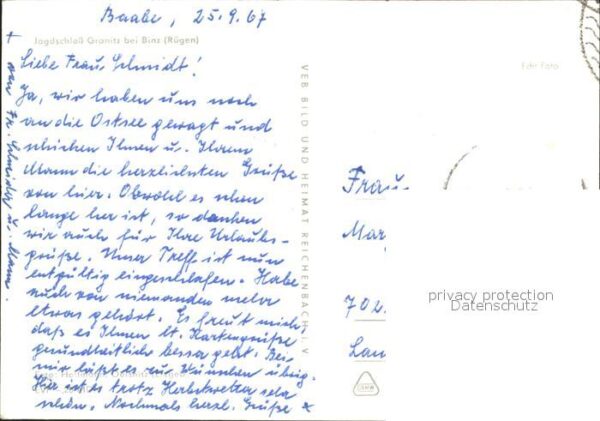 Baabe, 25.9.67
Jagdschloß Granitz bei Binz (Rügen)
Liebe Frau Schmidt!
Ja, wir haben uns noch
an die Ostsee gewagt und
schicken Ihnen u. Ihrem
Mann die herzlichsten Grüße
von hier. Obwohl es schon
lange her ist, so danken
wir auch für Ihre Urlaubs-
grüße. Unser Treff ist nun
entgültig eingeschlafen. Habe
auch von niemanden mehr
etwas gehört. Es freut mich,
daß es Ihnen lt. Kartengrüße
gesundheitlich besser geht. Bei
mir läßt es zu Wünschen übrig.
Hier ist es trotz Herbstwetter sehr
schön. Nochmals herzl. Grüße x
+ von Fr. Schneider u. Mann.
VEB BILD UND HEIMAT REICHENBACH i. V.
Echt Foto
Frau
Mar
702
privacy protection
Datenschutz